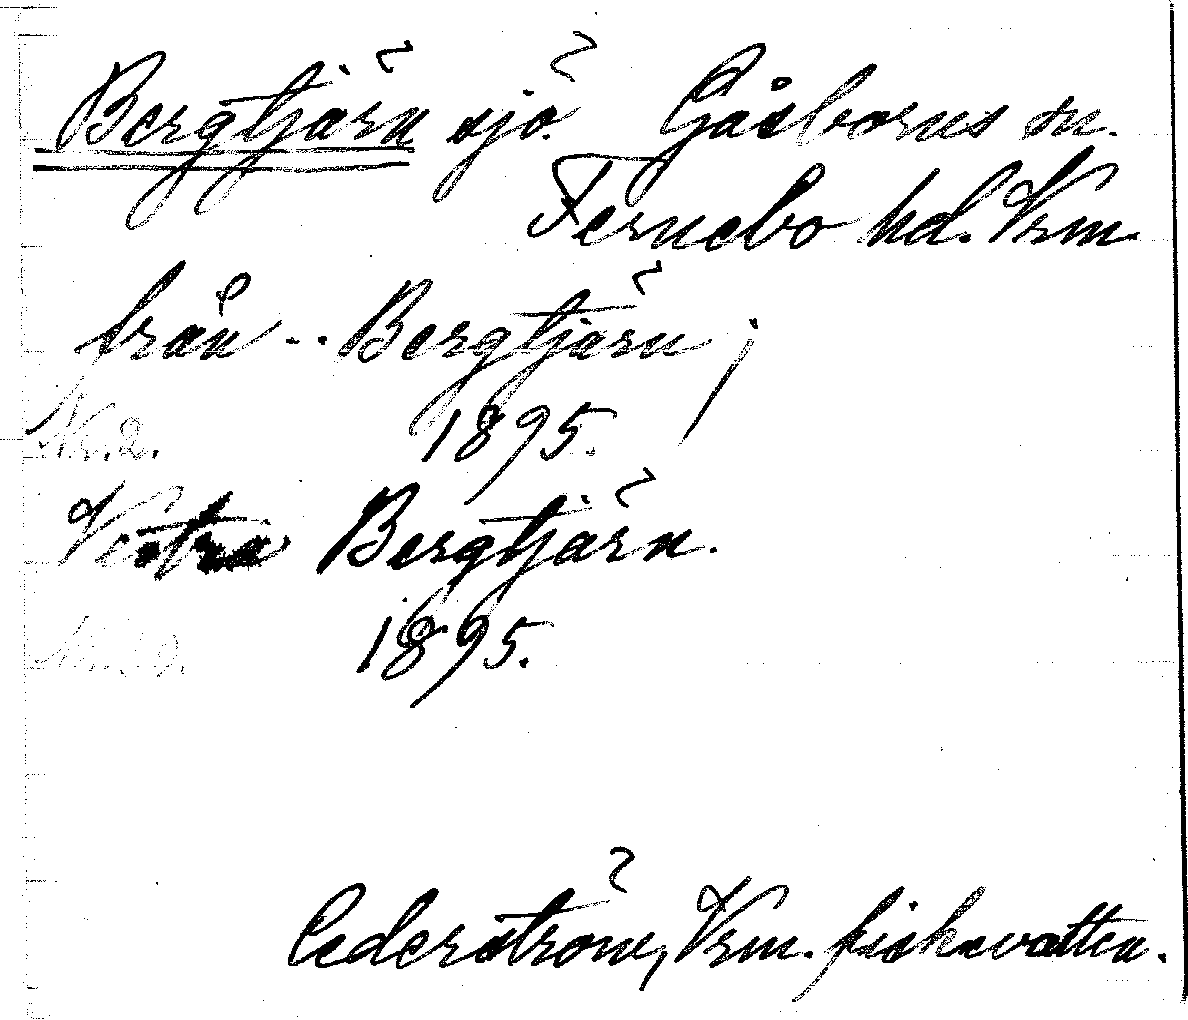 Bergtjärn sjö. Gåsborns sn.
Fernebo hd. Vrm.
från -- Bergtjärn;
Nr. 2. 1895.
Vestra Bergtjärn.
1895.
Cederström, Vrm. fiskevatten.